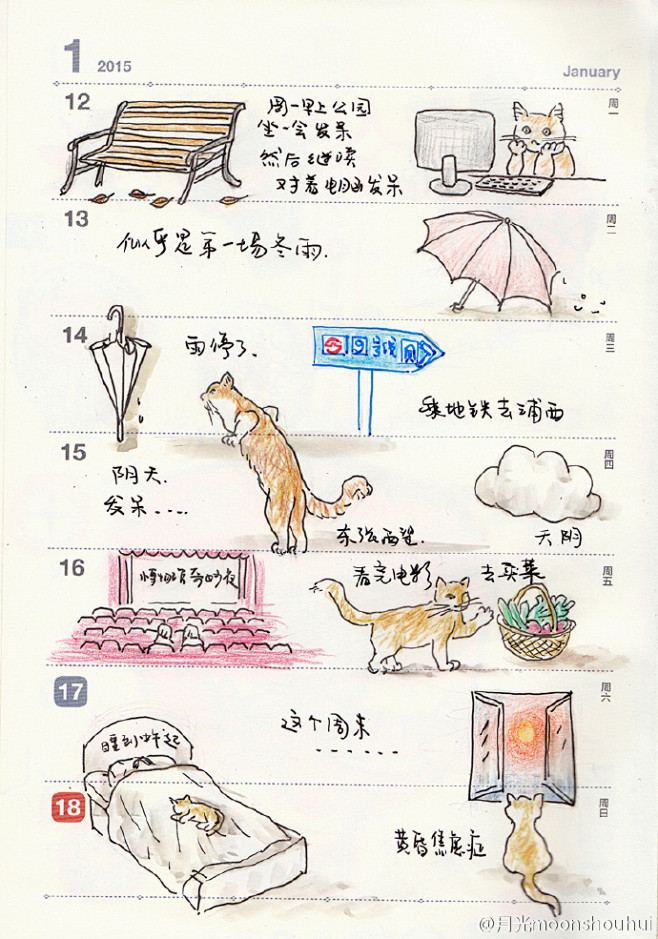 1 2015
January
12
周一早上公园
坐一会发呆
然后继续
对着电脑发呆
周一
13
似乎是第一场冬雨.
周二
14
雨停了.
周三
乘地铁去浦西
15
阴天.
发呆.....
东张西望.
天阴
周四
16
博物馆奇妙夜
看完电影
去买菜
周五
17
这个周末
......
周六
睡到中午起
18
黄昏焦虑症
周日
@月光moonshouhui